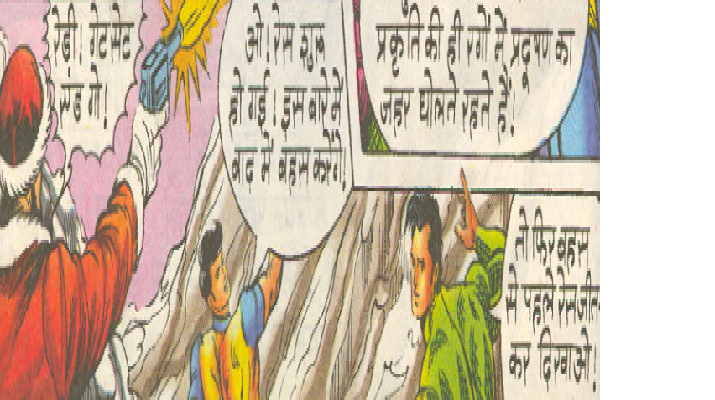 रेडी! गेटसेट
एन्ड गो!
ओ! रेस शुरू
हो गई! इस बारे में
बाद में बहस करेंगे!
प्रकृति की ही रगों में प्रदूषण का
जहर घोलते रहते हैं!
तो फिर बहस
से पहले रेस जीत
कर दिखाओ!